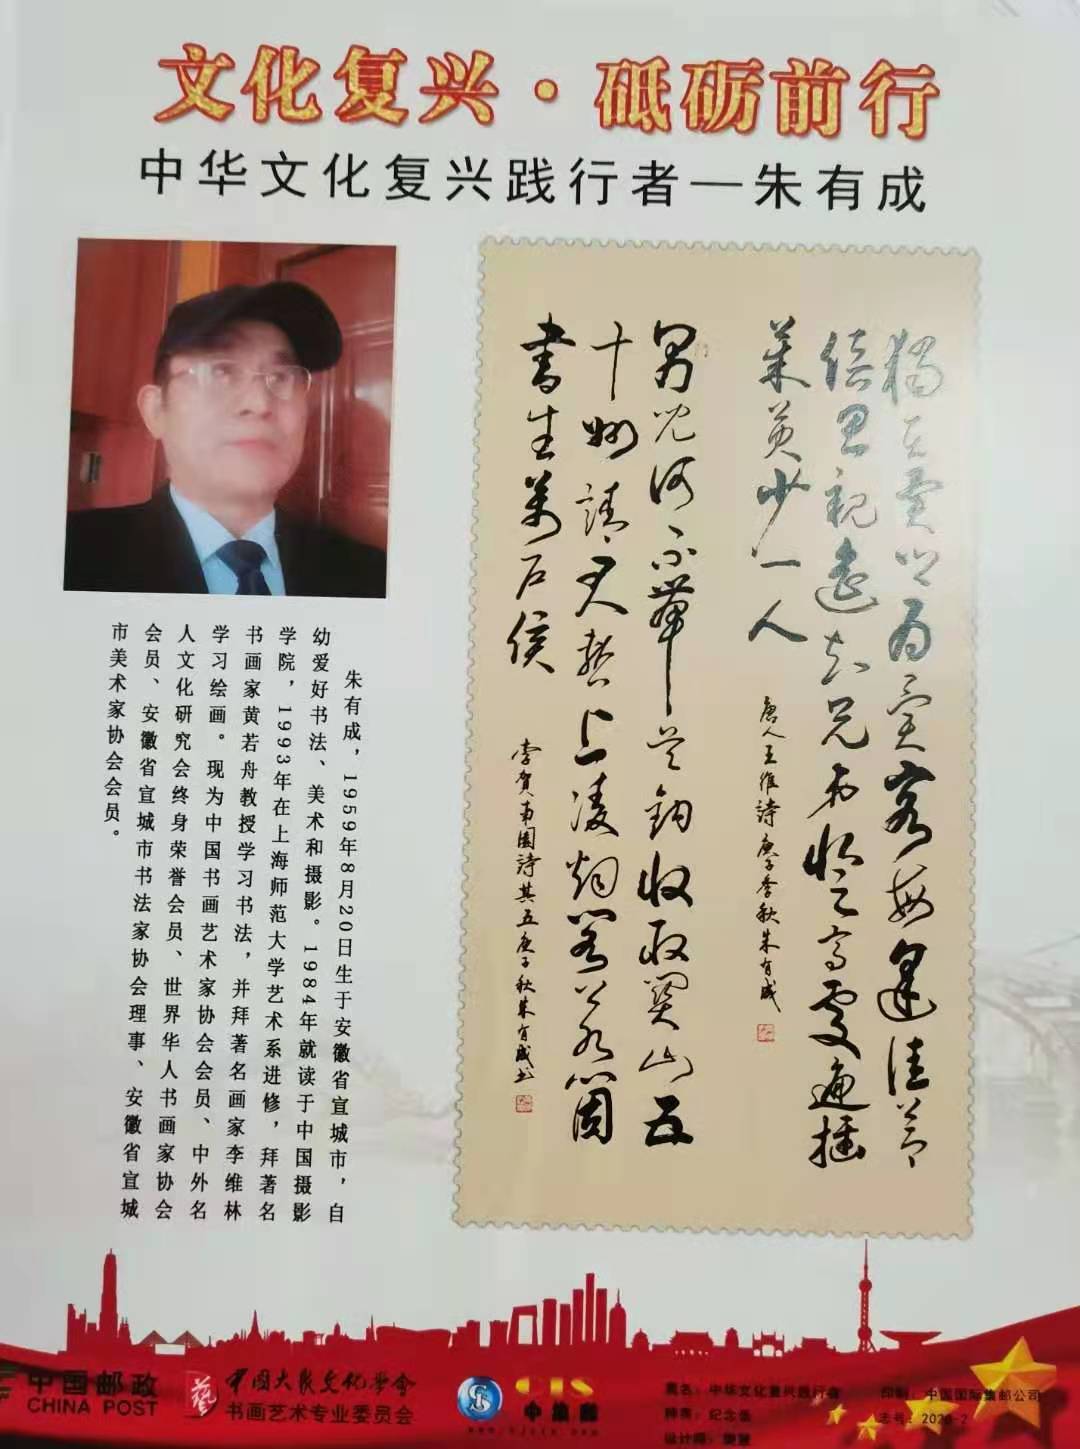 文化复兴·砥砺前行
中华文化复兴践行者—朱有成
朱有成，1959年8月20日生于安徽省宣城市，自
幼爱好书法、美术和摄影。1984年就读于中国摄影
学院，1993年在上海师范大学艺术系进修，拜著名
书画家黄若舟教授学习书法，并拜著名画家李维林
学习绘画。现为中国书画艺术家协会会员、中外名
人文化研究会终身荣誉会员、世界华人书画家协会
会员、安徽省宣城市书法家协会理事、安徽省宣城
市美术家协会会员。
獨在異鄉為異客每逢佳節
倍思親遙知兄弟登高處遍插
茱萸少一人
唐人王維詩庚子季秋朱有成
男兒何不帶吳鉤收取關山五
十州請君暫上凌煙閣若個
書生萬戶侯
李賀南園詩其五庚子秋朱有成书
中国邮政
CHINA POST
藝
中国大众文化学会
书画艺术专业委员会
CIS
中集邮
票名：中华文化复兴践行者
种类：纪念张
设计师：
印制：中国国际集邮公司
志号：2020-2